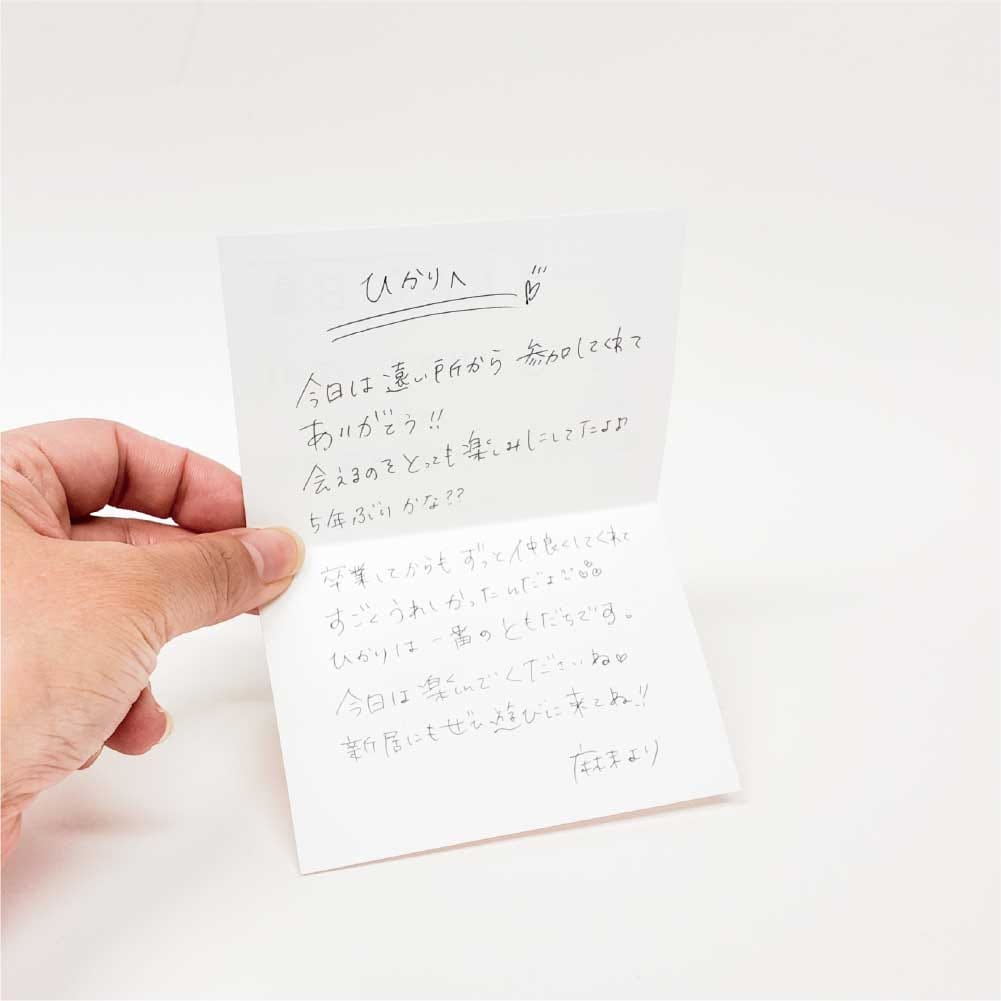 ひかりへ
今日は遠い所から 参加してくれて
ありがとう!!
会えるのをとっても楽しみにしてたよ♪
5年ぶりかな??
卒業してからもずっと仲良くしてくれて
すごくうれしかったんだよ
ひかりは一番のともだちです。
今日は楽しんでくださいね♡
新居にもぜひ遊びに来てね!!
麻未より